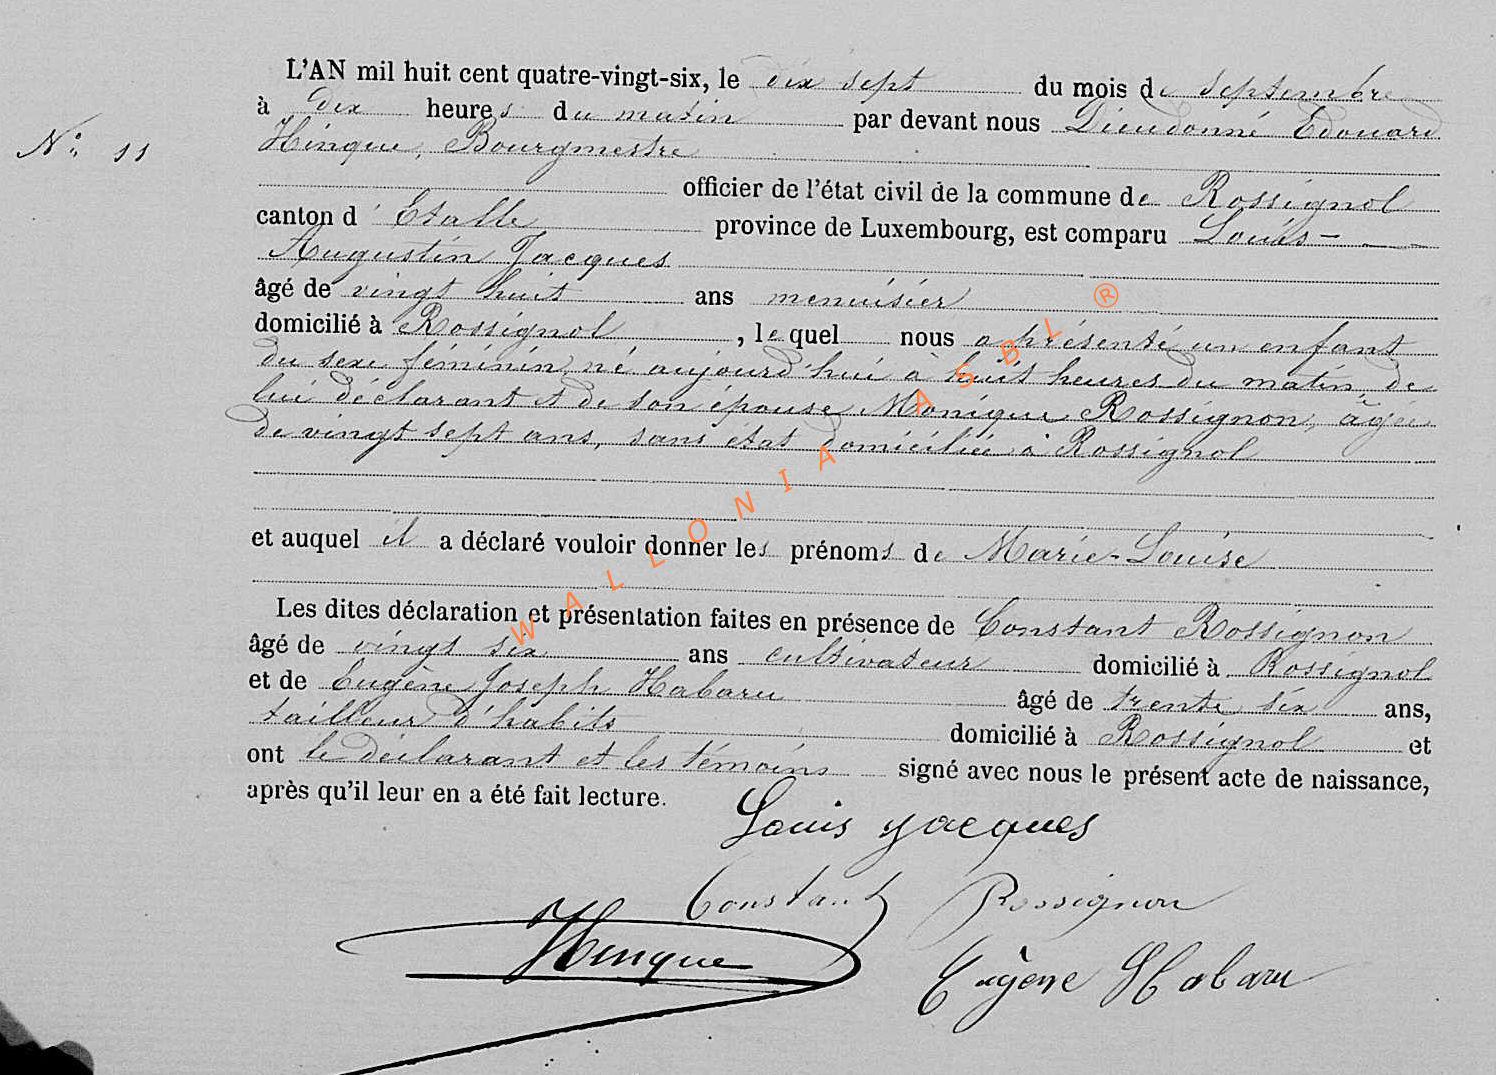 L'AN mil huit cent quatre-vingt-six, le dix sept du mois de Septembre
à Dix heures du matin par devant nous Dieudonné Edouard
N° 11
Hinque, Bourgmestre
officier de l'état civil de la commune de Rossignol
canton d'Etalle province de Luxembourg, est comparu Louis-
Augustin Jacques
âgé de vingt huit ans menuisier
domicilié à Rossignol, lequel nous a présenté un enfant
du sexe féminin, né aujourd'hui à huit heures du matin de
lui déclarant et de son épouse Monique Rossignon, âgée
de vingt sept ans, sans état domiciliée à Rossignol
et auquel il a déclaré vouloir donner les prénoms de Marie-Louise
Les dites déclaration et présentation faites en présence de Constant Rossignon
âgé de vingt six ans cultivateur domicilié à Rossignol
et de Eugène Joseph Habaru âgé de trente six ans,
tailleur d'habits domicilié à Rossignol et
ont le déclarant et les témoins signé avec nous le présent acte de naissance,
après qu'il leur en a été fait lecture.
Louis Jacques
Constant Rossignon
Hinque
Eugène Habaru
WALLONIA ASBL ®